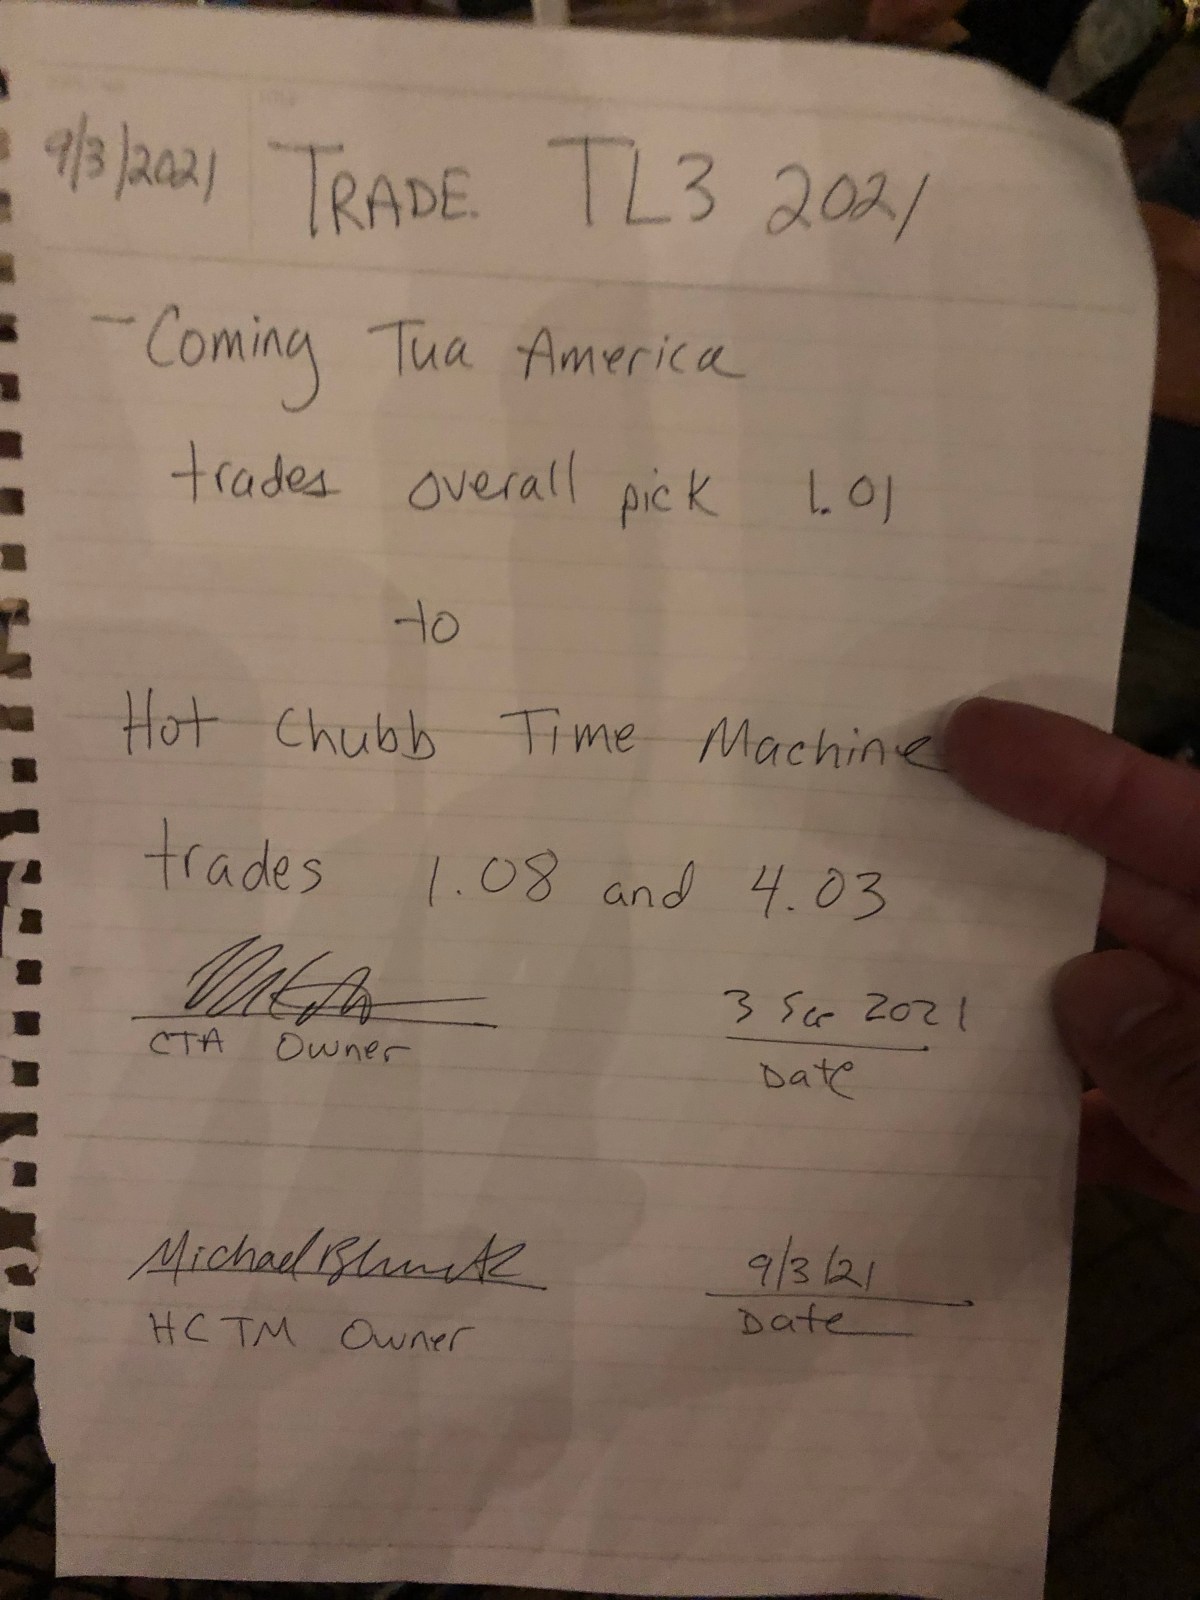 9/3/2021 TRADE. TL3 2021
- Coming Tua America
trades overall pick 1.01
to
Hot Chubb Time Machine
trades 1.08 and 4.03
3 Sep 2021
CTA Owner
Date
Michael
9/3/21
HCTM Owner
Date